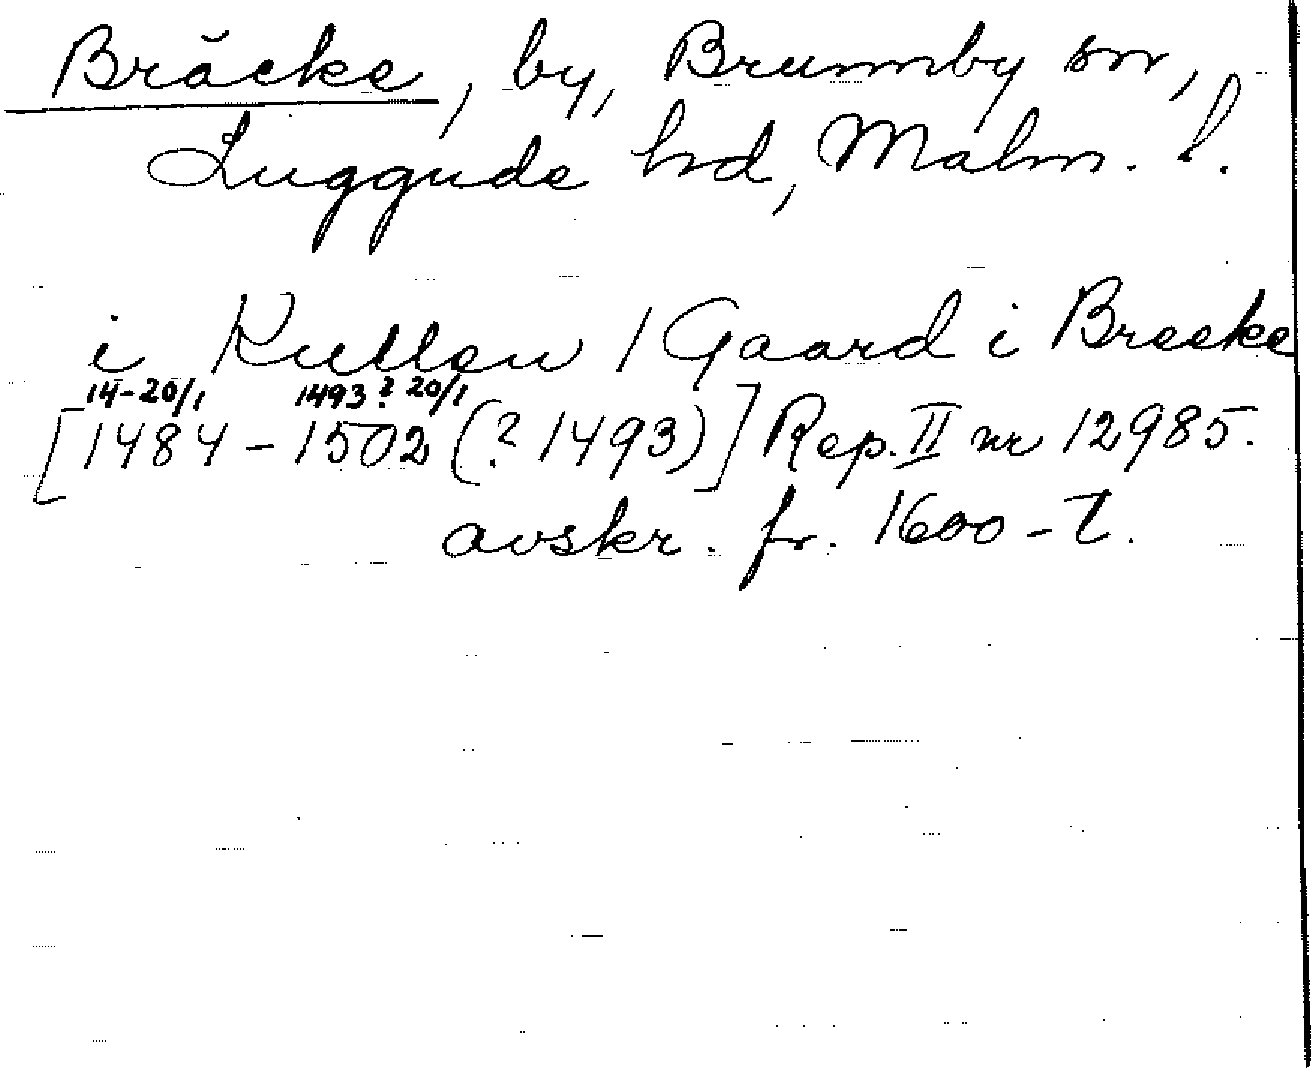 Bräcke, by, Brunnby sn,
Luggude hd, Malm. l.
i Kullen 1 Gaard i Brecke
14-20/1 1493? 20/1
[1484 - 1502 (? 1493)] Rep. II nr 12985.
avskr. fr. 1600-t.